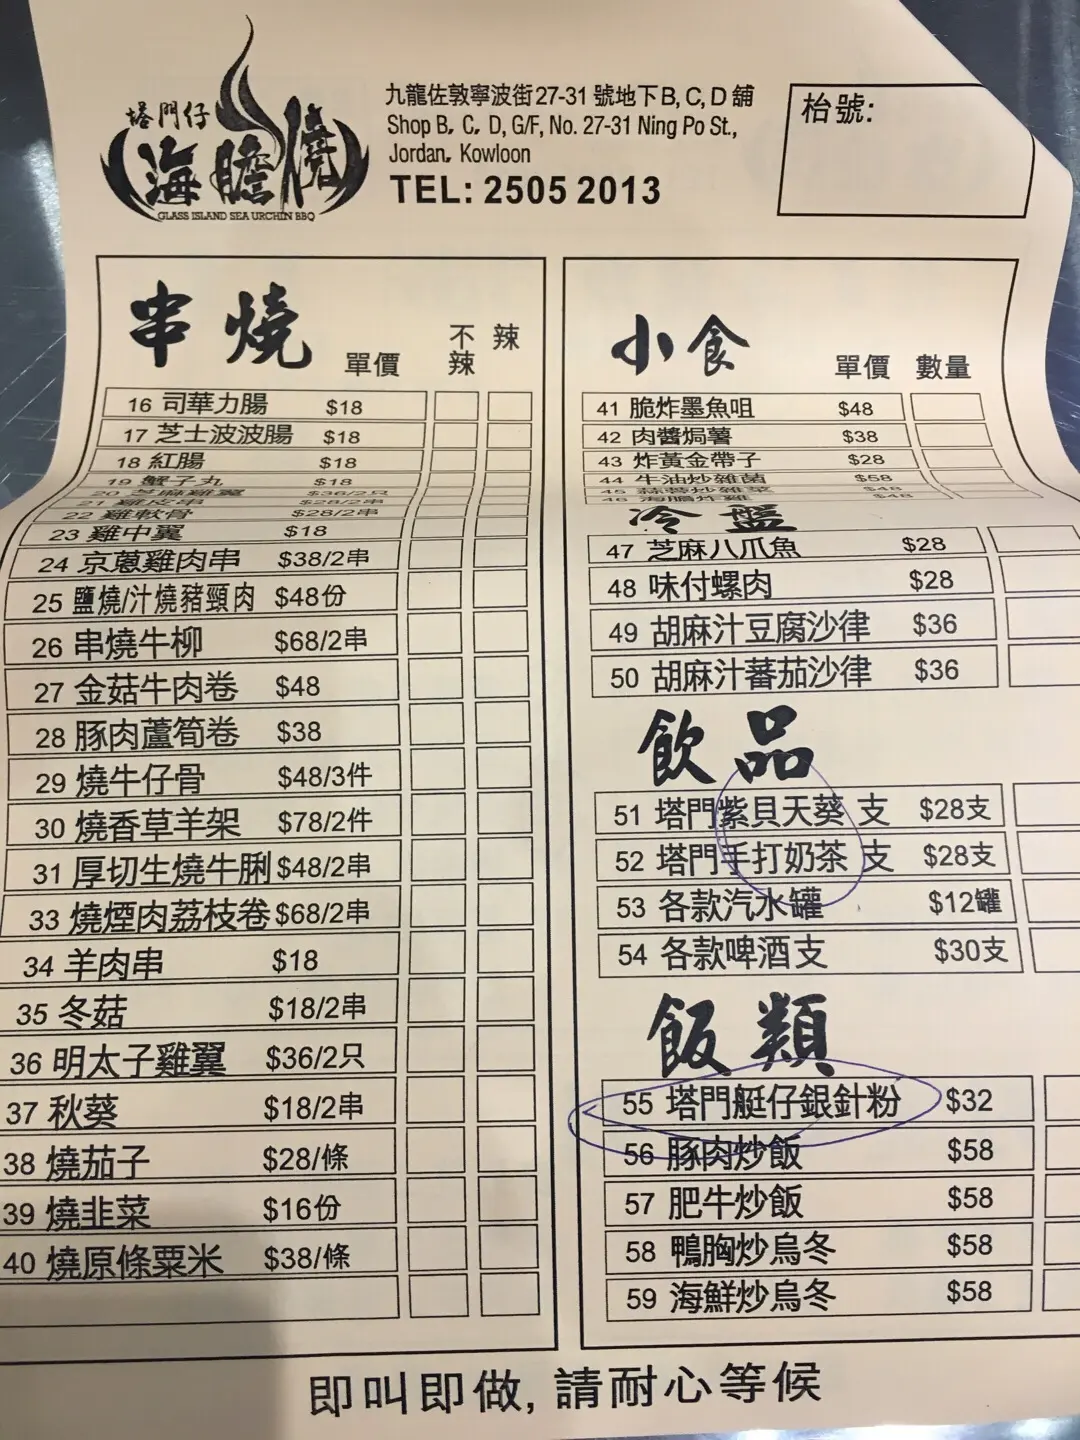 塔門仔
海膽燒
GLASS ISLAND SEA URCHIN BBQ
九龍佐敦寧波街27-31號地下B, C, D舖
Shop B, C, D, G/F, No. 27-31 Ning Po St.,
Jordan, Kowloon
TEL: 2505 2013
枱號:
串燒 單價 不辣 辣
16 司華力腸 $18
17 芝士波波腸 $18
18 紅腸 $18
19 蟹子丸 $18
20 芝麻雞翼 $36/2只
21 雞皮串 $28/2串
22 雞軟骨 $28/2串
23 雞中翼 $18
24 京蔥雞肉串 $38/2串
25 鹽燒/汁燒豬頸肉 $48份
26 串燒牛柳 $68/2串
27 金菇牛肉卷 $48
28 豚肉蘆筍卷 $38
29 燒牛仔骨 $48/3件
30 燒香草羊架 $78/2件
31 厚切生燒牛脷 $48/2串
33 燒煙肉荔枝卷 $68/2串
34 羊肉串 $18
35 冬菇 $18/2串
36 明太子雞翼 $36/2只
37 秋葵 $18/2串
38 燒茄子 $28/條
39 燒韭菜 $16份
40 燒原條粟米 $38/條
小食 單價 數量
41 脆炸墨魚咀 $48
42 肉醬焗薯 $38
43 炸黃金帶子 $28
44 牛油炒雜菌 $58
45 蒜蓉炒雜菜 $48
46 海膽炸雞 $48
冷盤
47 芝麻八爪魚 $28
48 味付螺肉 $28
49 胡麻汁豆腐沙律 $36
50 胡麻汁蕃茄沙律 $36
飲品
51 塔門紫貝天葵 支 $28支
52 塔門手打奶茶 支 $28支
53 各款汽水罐 $12罐
54 各款啤酒支 $30支
飯類
55 塔門艇仔銀針粉 $32
56 豚肉炒飯 $58
57 肥牛炒飯 $58
58 鴨胸炒烏冬 $58
59 海鮮炒烏冬 $58
即叫即做, 請耐心等候